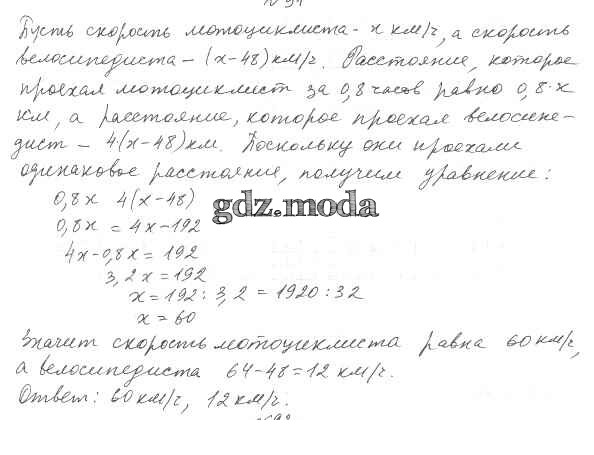 Пусть скорость мотоциклиста - x км/г, а скорость
велосипедиста - (x-48) км/г. Расстояние, которое
проехал мотоциклист за 0,8 часов равно 0,8·x
км, а расстояние, которое проехал велосипе-
дист - 4(x-48) км. Поскольку они проехали
одинаковое расстояние, получим уравнение:
0,8x 4(x-48)
gdz.moda
0,8x = 4x-192
4x-0,8x = 192
3,2x = 192
x = 192 : 3,2 = 1920 : 32
x = 60
Значит скорость мотоциклиста равна 60 км/г,
а велосипедиста 64-48=12 км/г.
Ответ: 60 км/г, 12 км/г.